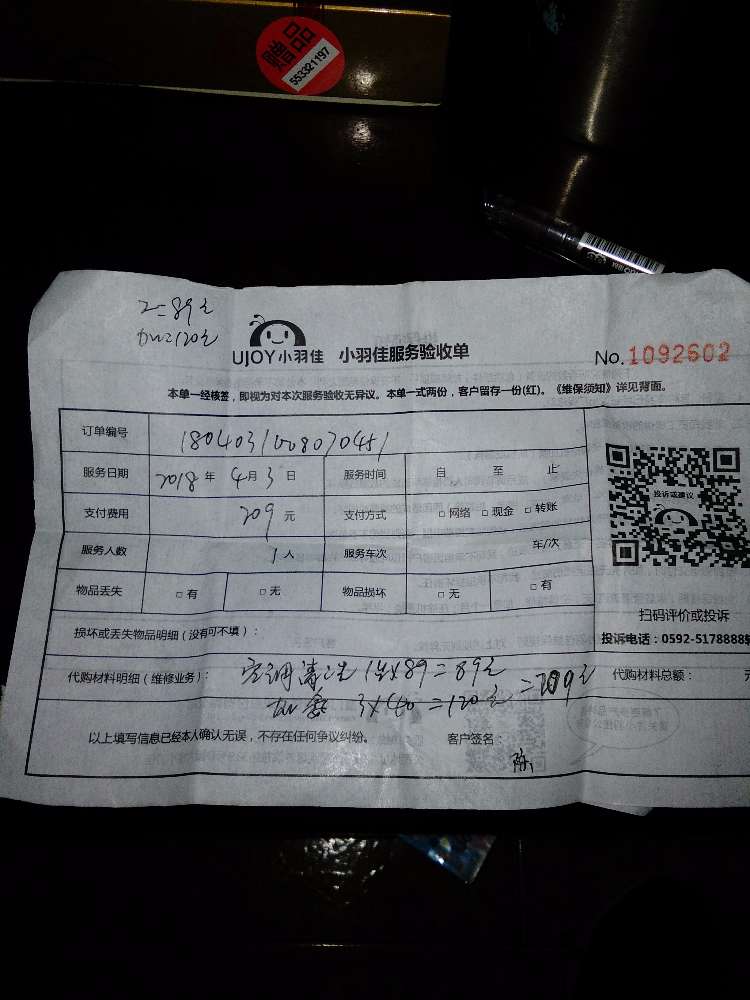 赠品
553321197
2=89元
加=120元
UJOY小羽佳 小羽佳服务验收单 No.1092602
本单一经核签，即视为对本次服务验收无异议。本单一式两份，客户留存一份(红)。《维保须知》详见背面。
订单编号
服务日期 2018年4月3日 服务时间 自 至 止
支付费用 209元 支付方式 □网络 □现金 □转账
服务人数 1人 服务车次 车/次
物品丢失 □有 □无 物品损坏 □无 □有
投诉或建议
扫码评价或投诉
投诉电话：0592-5178885
损坏或丢失物品明细（没有可不填）：
代购材料明细（维修业务）： 空调清洗 1台x89=89元 代购材料总额： 元
3x40=120元 =209元
以上填写信息已经本人确认无误，不存在任何争议纠纷。 客户签名：
陈